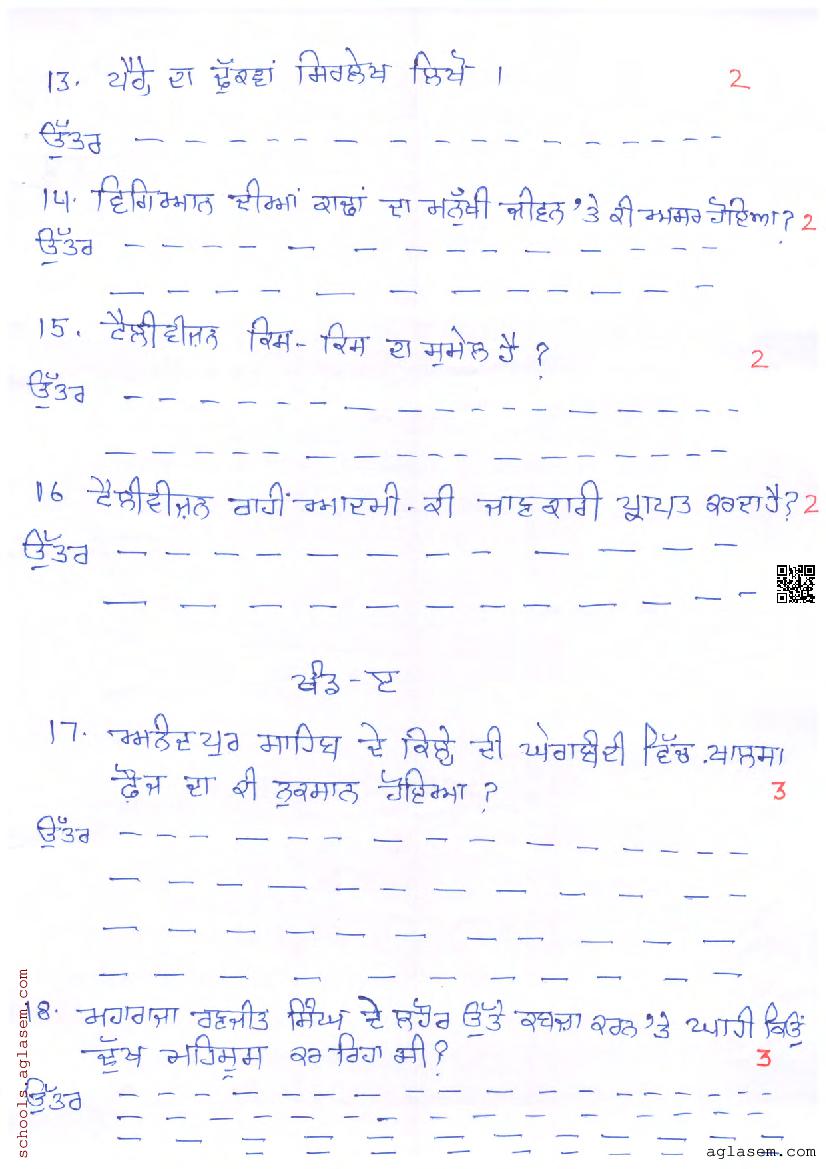 13. ਪੈਰ੍ਹੇ ਦਾ ਢੁੱਕਵਾਂ ਸਿਰਲੇਖ ਲਿਖੋ । 2
ਉੱਤਰ
14. ਵਿਗਿਆਨ ਦੀਆਂ ਕਾਢਾਂ ਦਾ ਮਨੁੱਖੀ ਜੀਵਨ 'ਤੇ ਕੀ ਅਸਰ ਹੋਇਆ? 2
ਉੱਤਰ
15. ਟੈਲੀਵੀਜ਼ਨ ਕਿਸ-ਕਿਸ ਦਾ ਸੁਮੇਲ ਹੈ ? 2
ਉੱਤਰ
16 ਟੈਲੀਵੀਜ਼ਨ ਰਾਹੀਂ ਆਦਮੀ. ਕੀ ਜਾਣਕਾਰੀ ਪ੍ਰਾਪਤ ਕਰਦਾ ਹੈ? 2
ਉੱਤਰ
ਖੰਡ-ੲ
17. ਅਨੰਦਪੁਰ ਸਾਹਿਬ ਦੇ ਕਿਲ੍ਹੇ ਦੀ ਘੇਰਾਬੰਦੀ ਵਿੱਚ ਖ਼ਾਲਸਾ
ਫ਼ੌਜ ਦਾ ਕੀ ਨੁਕਸਾਨ ਹੋਇਆ ? 3
ਉੱਤਰ
18. ਮਹਾਰਾਜਾ ਰਣਜੀਤ ਸਿੰਘ ਦੇ ਲਹੌਰ ਉੱਤੇ ਕਬਜ਼ਾ ਕਰਨ 'ਤੇ ਘਾਹੀ ਕਿਉਂ
ਦੁੱਖ ਮਹਿਸੂਸ ਕਰ ਰਿਹਾ ਸੀ? 3
ਉੱਤਰ
schools.aglasem.com
aglasem.com